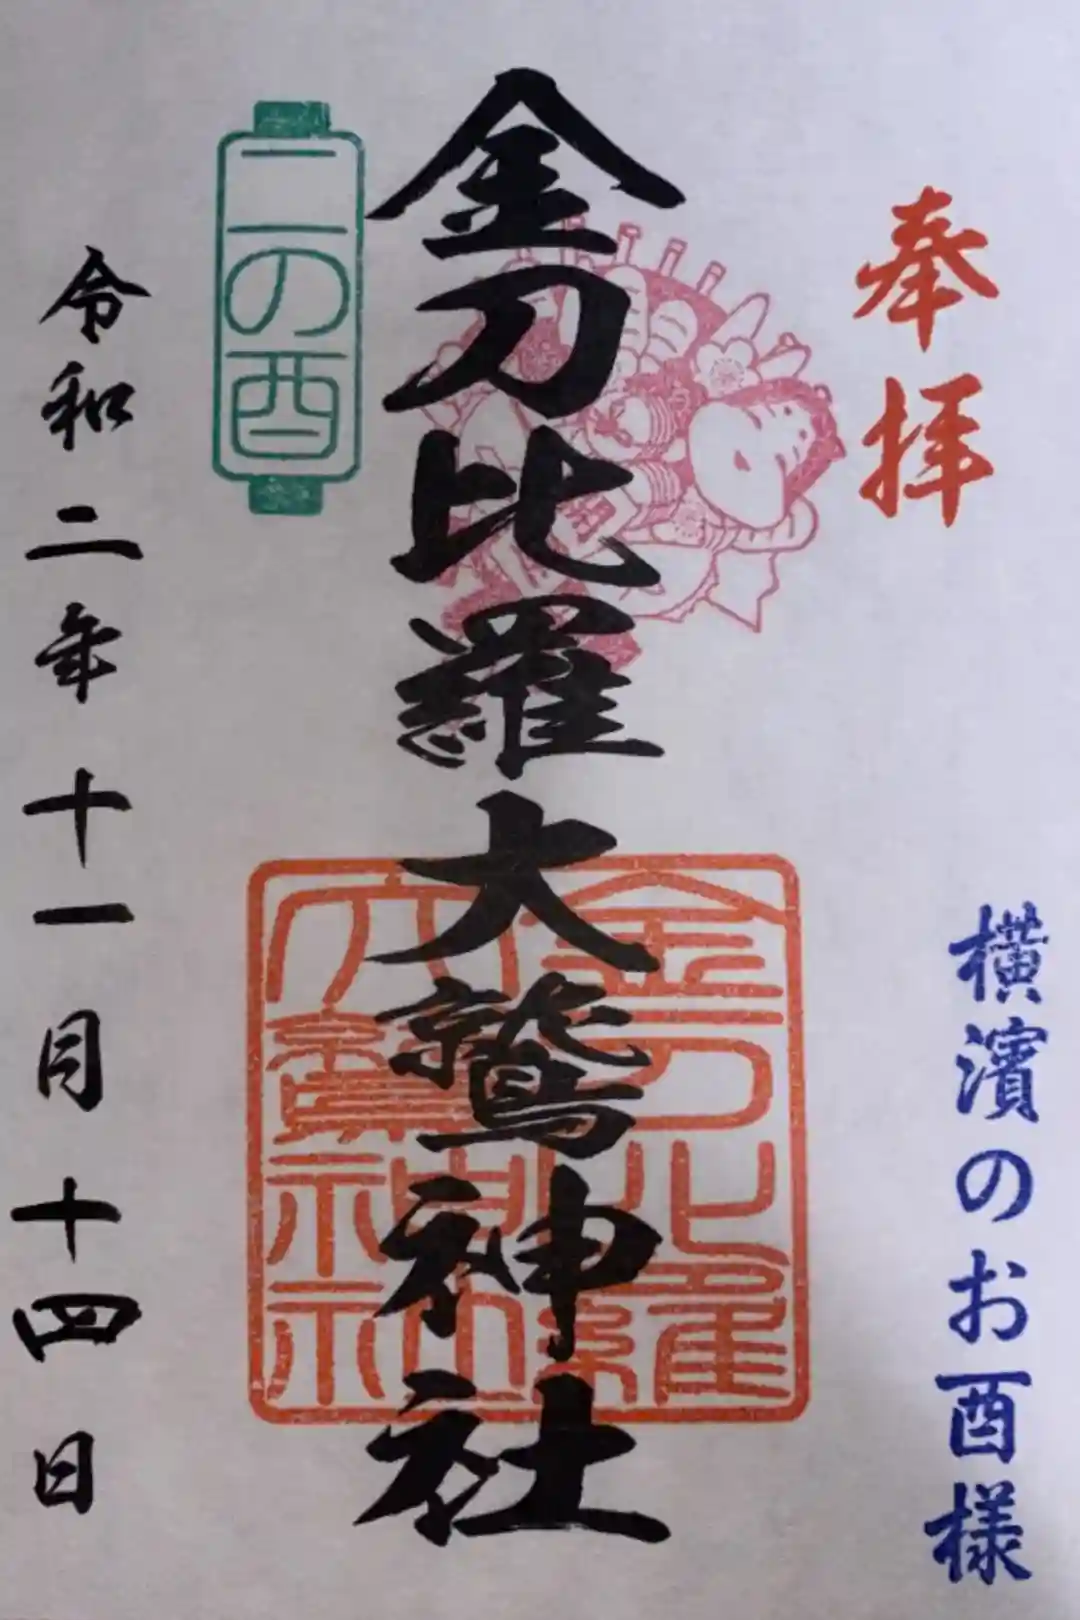 奉拝
横濱のお酉様
金刀比羅大鷲神社
金刀比羅
大鷲神社
二の酉
令和二年十一月十四日